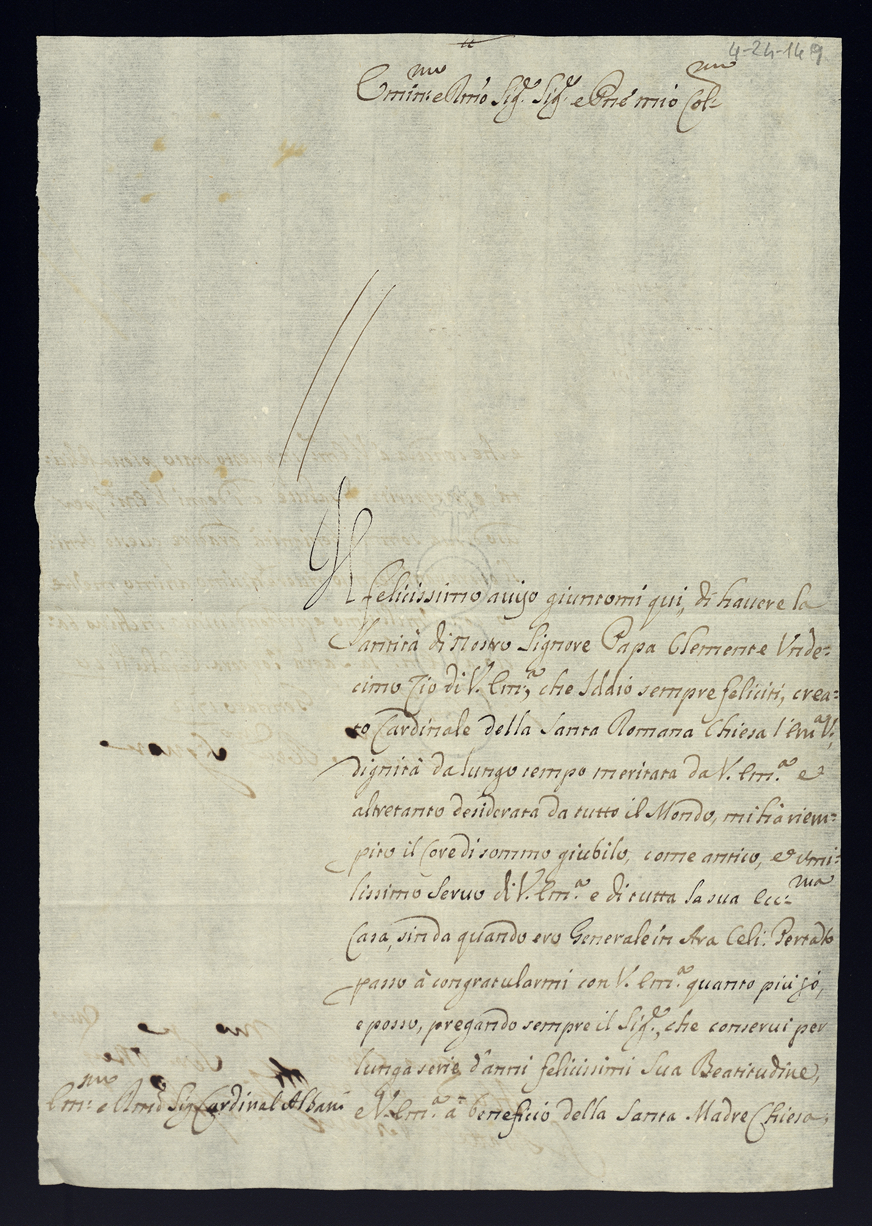 4-24-149
Emin.mo e Rmo Sig.r Sig.r e Prōe mio Col.mo
Il felicissimo aviso giuntomi qui, di havere la
Santità di Nostro Signore Papa Clemente Unde-
cimo Zio di V. Em.a, che Iddio sempre feliciti, crea-
to Cardinale della Santa Romana Chiesa l'Em.a V.,
dignità da lungo tempo meritata da V. Em.a e
altretanto desiderata da tutto il Mondo, mi hà riem-
pito il Core di sommo giubilo, come antico, et umi-
lissimo Servo di V. Em.a e di tutta la sua Ecc.ma
Casa, sin da quando ero Generale in Ara Celi. Pertāto
passo à congratularmi con V. Em.a quanto più sò,
e posso, pregando sempre il Sig.re, che conservi per
lunga serie d'anni felicissimi Sua Beatitudine,
e V. Em.a à beneficio della Santa Madre Chiesa,
Em.mo e Rmō Sig Cardinal Albani